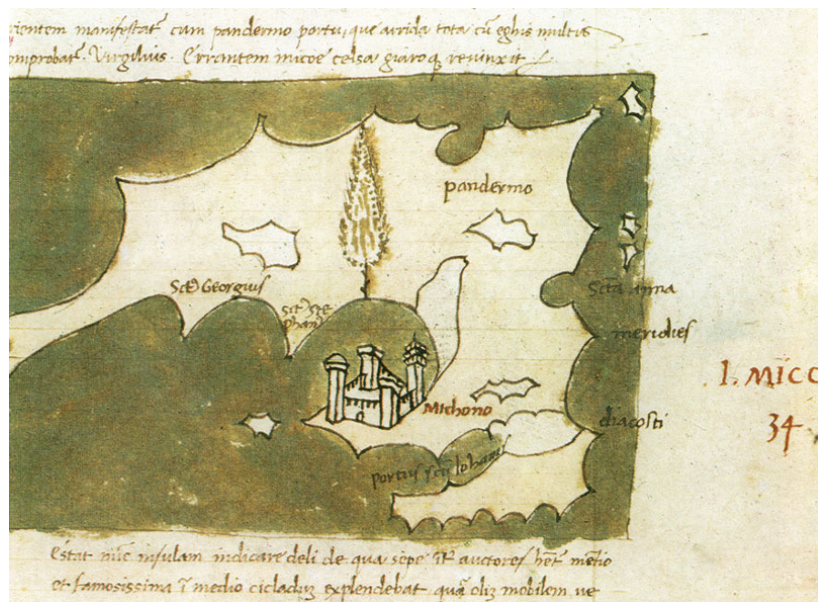 orientem manifestat cum pandermo portu, que arrida tota cũ eghis multis
comprobat Virgilius. Errantem micoe celsa giaroq revinxit
pandermo
Sct̃ Georgius
Sct̃ Ste
phan
Sctã anna
meridies
I. MICO
34
Michono
diacosti
portus sctĩ Iohanis
Estat nũc insulam indicare deli de qua sepe auctores
et famosissima ĩ medio cicladuz explendebat quã oliz mobilem ve